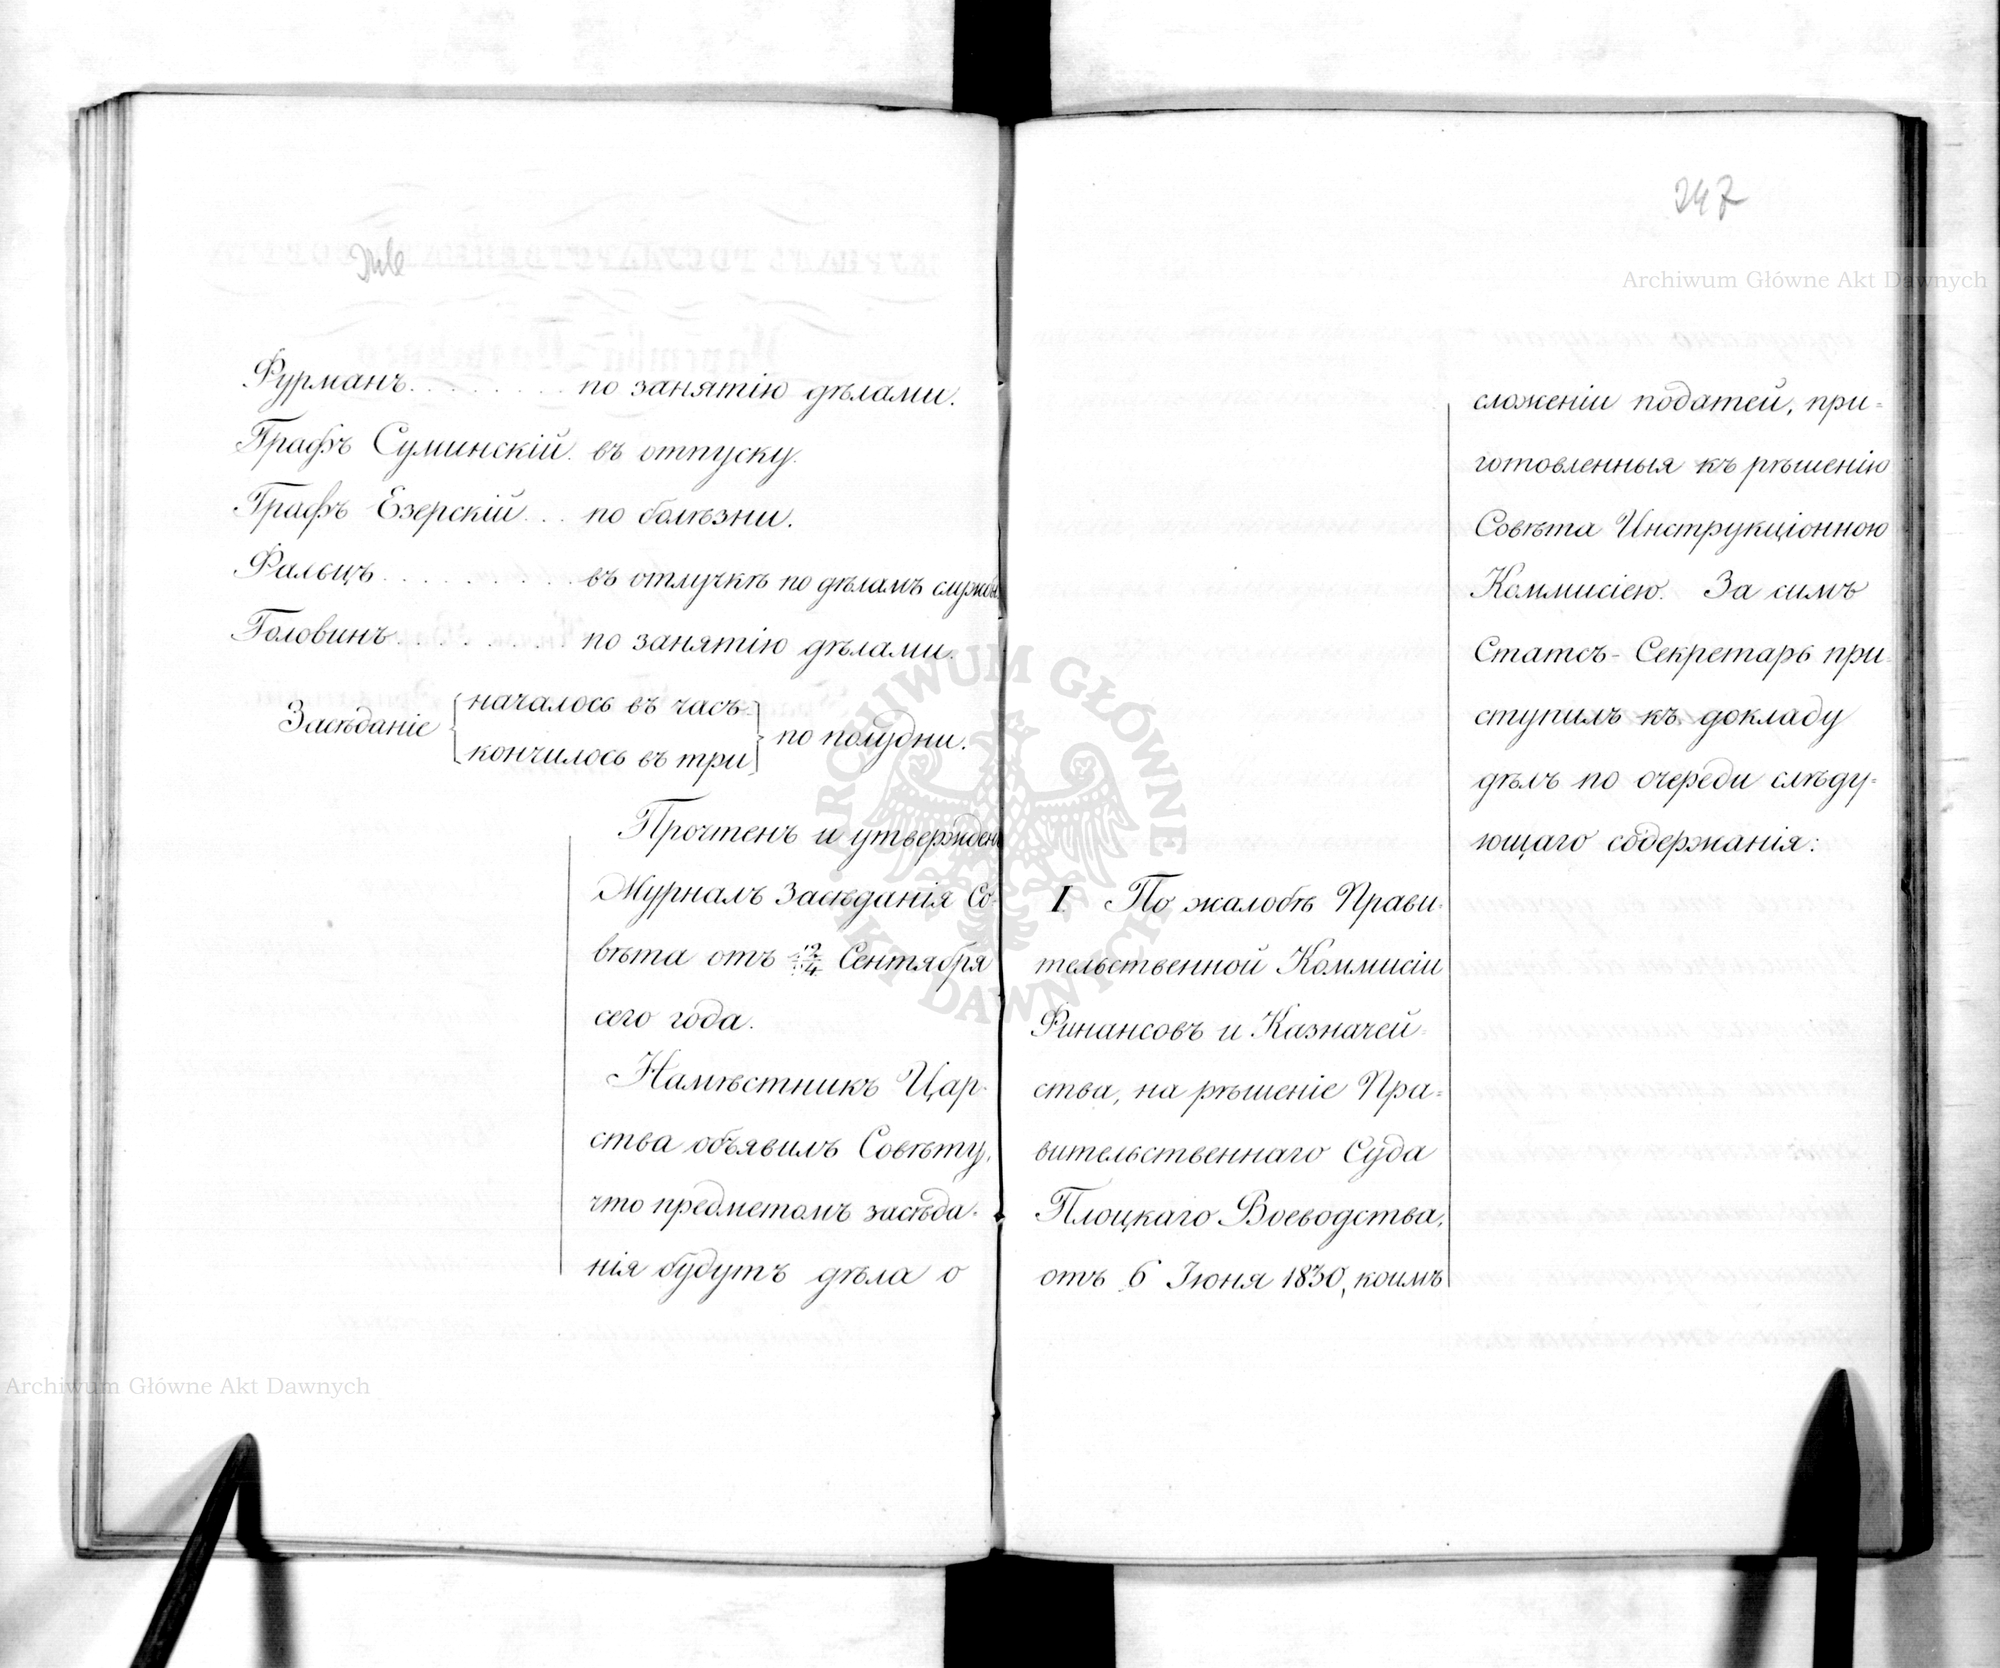 246
Фурманъ. . . . . . . . по занятію дѣлами.
Графъ Суминскій. въ отпуску.
Графъ Езерскій . . . по болѣзни.
Фальцъ . . . . . . . . . . въ отлучкѣ по дѣламъ службы
Головинъ . . . . . . . . . по занятію дѣлами.
Засѣданіе { началось въ часъ } по полудни.
кончилось въ три
Прочтенъ и утвержденъ
Журналъ Засѣданія Со-
вѣта отъ 12/24 Сентября
сего года.
Намѣстникъ Цар-
ства объявилъ Совѣту,
что предметомъ засѣда-
нія будутъ дѣла о
247
сложеніи податей, при=
готовленныя къ рѣшенію
Совѣта Инструкціонною
Коммисіею. За симъ
Статсъ-Секретарь при-
ступилъ къ докладу
дѣлъ по очереди слѣду=
ющаго содержанія:
I. По жалобѣ Прави-
тельственной Коммисіи
Финансовъ и Казначей=
ства, на рѣшеніе Пра=
вительственнаго Суда
Плоцкаго Воеводства,
отъ 6 Іюня 1830, коимъ
Archiwum Główne Akt Dawnych
Archiwum Główne Akt Dawnych
ARCHIWUM GŁÓWNE AKT DAWNYCH